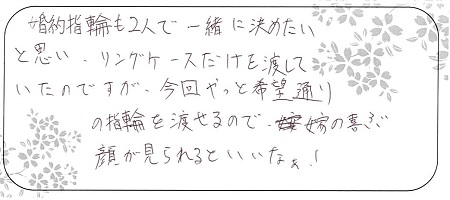 婚約指輪も2人で一緒に決めたい
と思い、リングケースだけを渡して
いたのですが、今回やっと希望通り
の指輪を渡せるので、嫁の喜ぶ
顔が見られるといいなぁ!